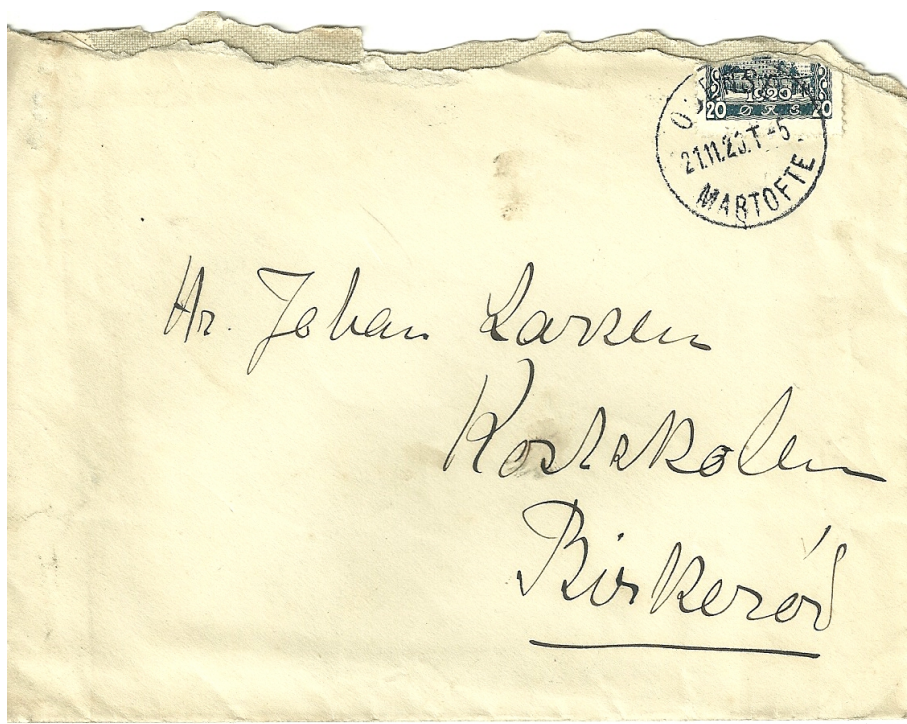 1920
20 ØRE 20
21.11.20.T-5
MARTOFTE
Hr. Johan Larsen
Kostskolen
Birkerød